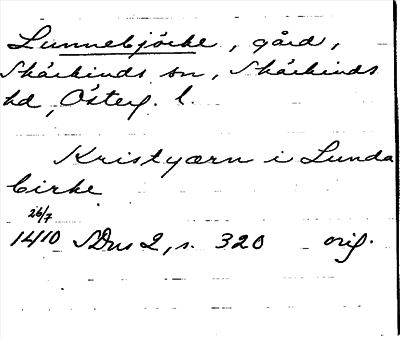 Lunnebjörke, gård,
Skärkinds sn, Skärkinds
hd, Österg. l.
Kristyærn i Lunda
birke
26/7
1410 SDns 2, s. 320 orig.